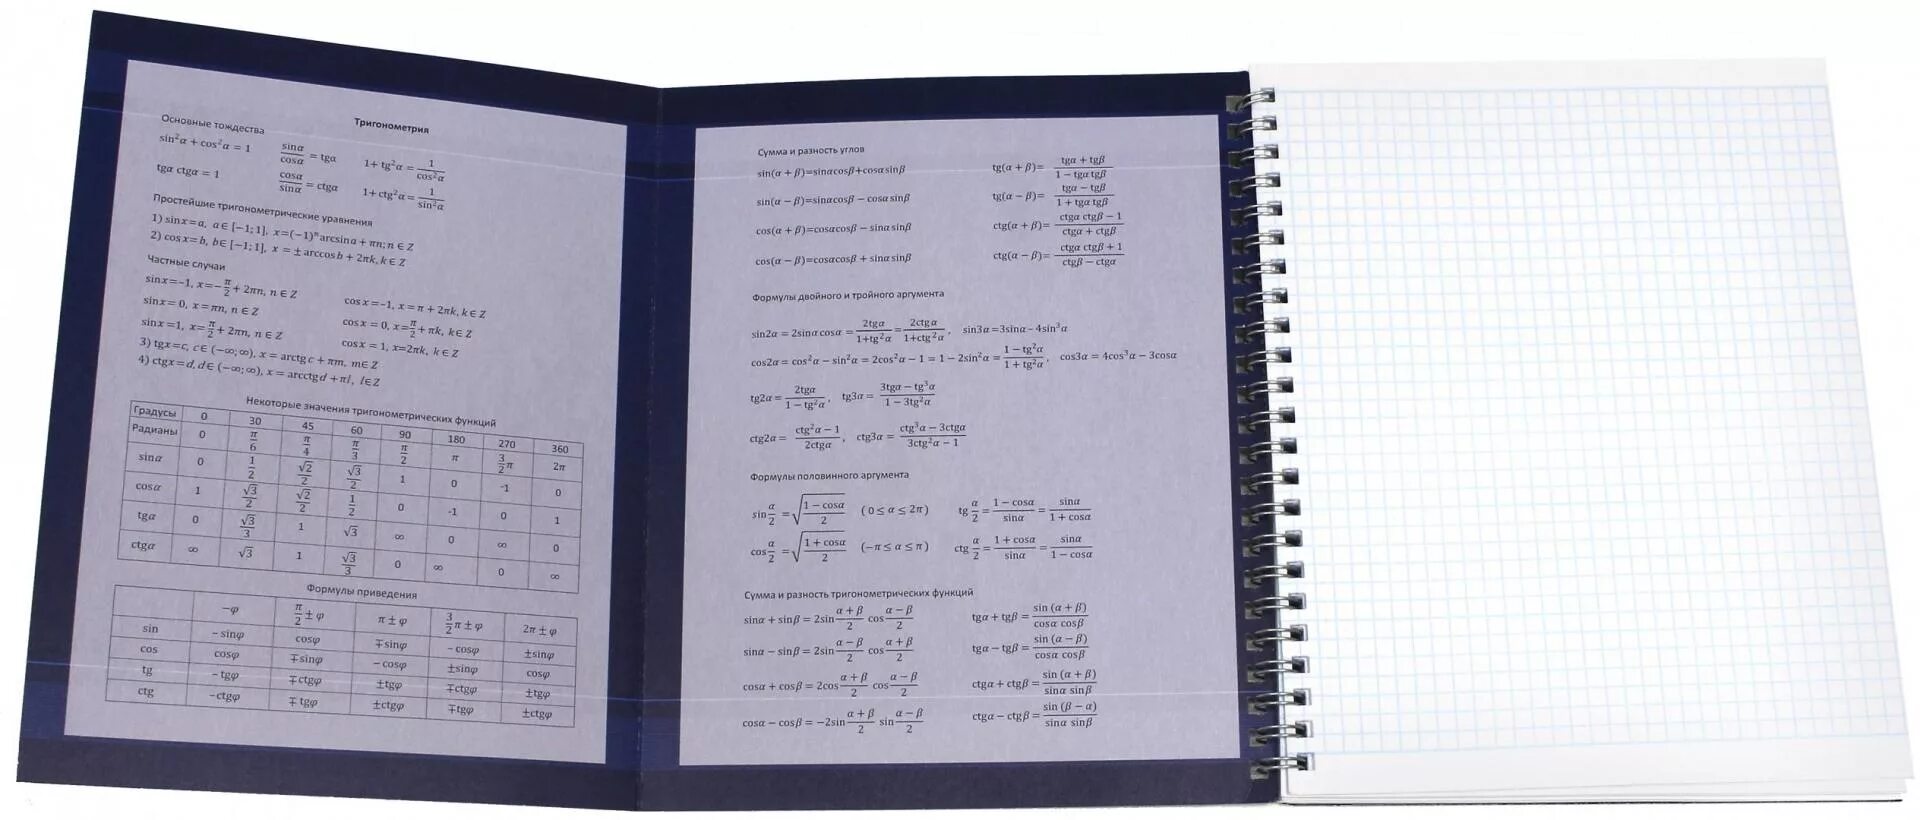 Тригонометрия
Основные тождества
sin²α + cos²α = 1   sinα/cosα = tgα   1+ tg²α = 1/cos²α
tgα ctgα = 1   cosα/sinα = ctgα   1+ ctg²α = 1/sin²α
Простейшие тригонометрические уравнения
1) sinx=a, a∈ [−1; 1], x=(−1)ⁿarcsina + πn; n ∈ Z
2) cosx=b, b∈ [−1; 1], x = ± arccosb + 2πk, k ∈ Z
Частные случаи
sinx=-1, x=−π/2 + 2πn, n ∈ Z   cosx=-1, x = π + 2πk, k∈ Z
sinx= 0, x=πn, n ∈ Z   cosx= 0, x=π/2 + πk, k∈ Z
sinx=1, x=π/2 + 2πn, n ∈ Z   cosx= 1, x=2πk, k∈ Z
3) tgx=c, c∈ (−∞; ∞), x = arctgc + πm, m∈ Z
4) ctgx=d, d∈ (−∞; ∞), x = arcctgd + πl, l∈ Z
Некоторые значения тригонометрических функций
Градусы 0 30 45 60 90 180 270 360
Радианы 0 π/6 π/4 π/3 π/2 π 3/2π 2π
sinα 0 1/2 √2/2 √3/2 1 0 -1 0
cosα 1 √3/2 √2/2 1/2 0 -1 0 1
tgα 0 √3/3 1 √3 ∞ 0 ∞ 0
ctgα ∞ √3 1 √3/3 0 ∞ 0 ∞
Формулы приведения
−φ π/2 ± φ π ± φ 3/2π ± φ 2π ± φ
sin − sinφ cosφ ∓sinφ - cosφ ±sinφ
cos cosφ ∓sinφ − cosφ ±sinφ cosφ
tg − tgφ ∓ctgφ ±tgφ ∓ctgφ ±tgφ
ctg −ctgφ ∓ tgφ ±ctgφ ∓tgφ ±ctgφ
Сумма и разность углов
sin(α + β)=sinαcosβ+cosαsinβ   tg(α + β)= (tgα + tgβ)/(1 − tgα tgβ)
sin(α − β)=sinαcosβ − cosαsinβ   tg(α − β)= (tgα − tgβ)/(1 + tgα tgβ)
cos(α + β)=cosαcosβ − sinαsinβ   ctg(α + β)= (ctgα ctgβ − 1)/(ctgα + ctgβ)
cos(α − β)=cosαcosβ + sinαsinβ   ctg(α − β)= (ctgα ctgβ + 1)/(ctgβ − ctgα)
Формулы двойного и тройного аргумента
sin2α = 2sinαcosα = 2tgα/(1+tg²α) = 2ctgα/(1+ctg²α), sin3α =3sinα - 4sin³α
cos2α = cos²α − sin²α = 2cos²α − 1 = 1 − 2sin²α = (1 − tg²α)/(1 + tg²α), cos3α = 4cos³α − 3cosα
tg2α = 2tgα/(1 − tg²α), tg3α = (3tgα − tg³α)/(1 − 3tg²α)
ctg2α = (ctg²α − 1)/(2ctgα), ctg3α = (ctg³α − 3ctgα)/(3ctg²α − 1)
Формулы половинного аргумента
sin α/2 = √((1 − cosα)/2) ( 0 ≤ α ≤ 2π)   tg α/2 = (1 − cosα)/sinα = sinα/(1 + cosα)
cos α/2 = √((1 + cosα)/2) (−π ≤ α ≤ π)   ctg α/2 = (1 + cosα)/sinα = sinα/(1 − cosα)
Сумма и разность тригонометрических функций
sinα + sinβ = 2sin (α + β)/2 cos (α − β)/2   tgα + tgβ = sin (α + β)/(cosα cosβ)
sinα − sinβ = 2sin (α − β)/2 cos (α + β)/2   tgα − tgβ = sin (α − β)/(cosα cosβ)
cosα + cosβ = 2cos (α + β)/2 cos (α − β)/2   ctgα + ctgβ = sin (α + β)/(sinα sinβ)
cosα − cosβ = −2sin (α + β)/2 sin (α − β)/2   ctgα − ctgβ = sin (β − α)/(sinα sinβ)